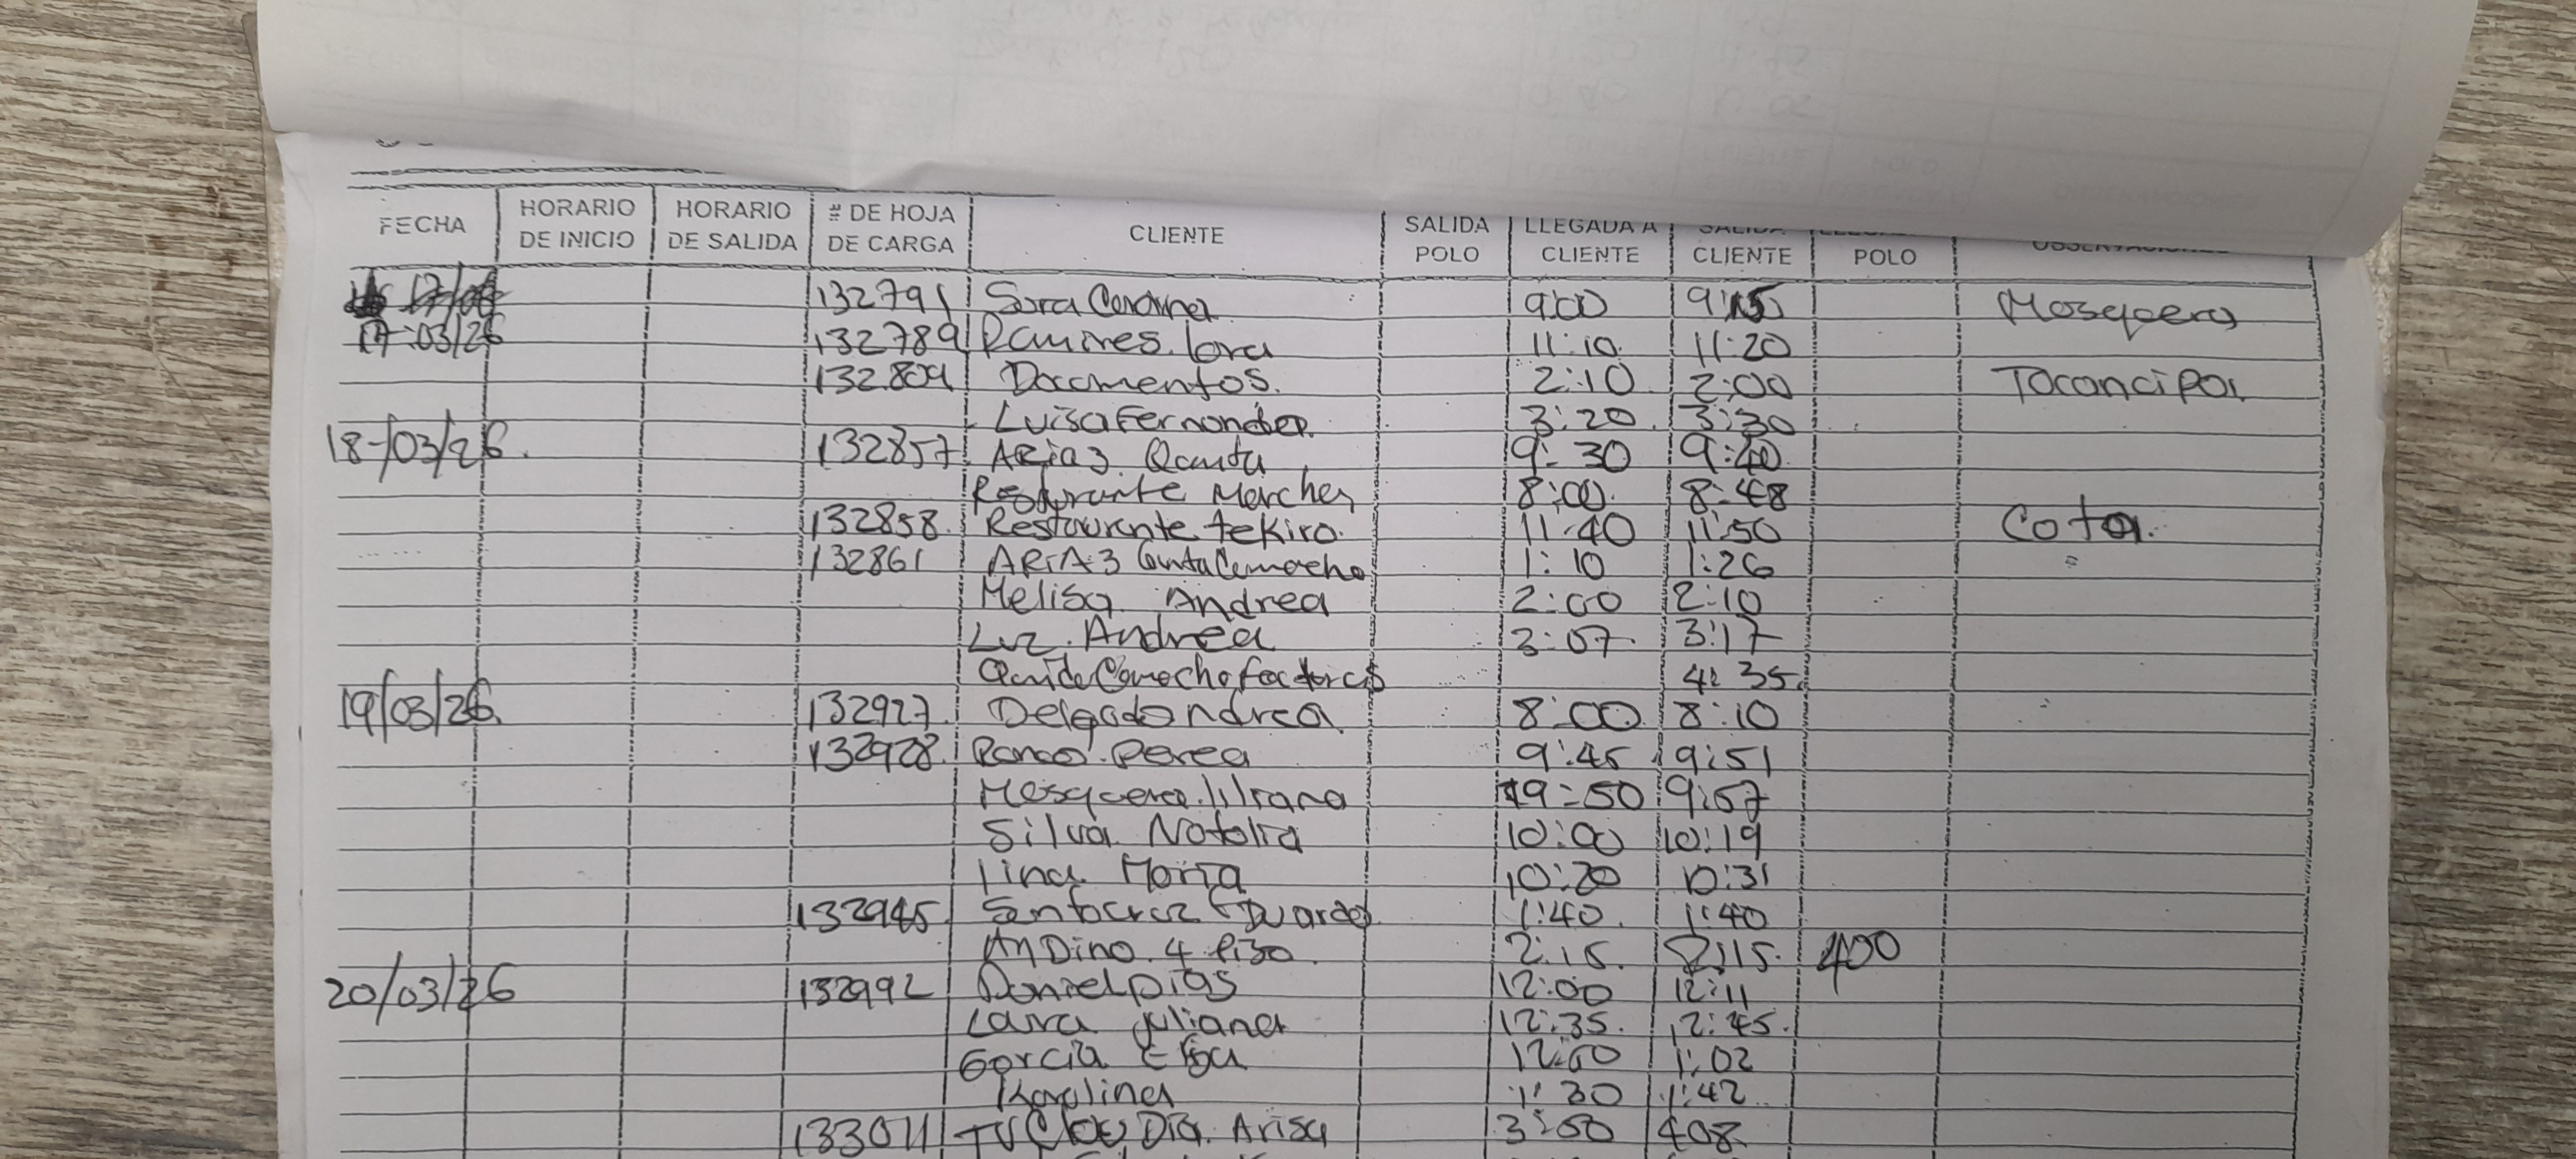 FECHA HORARIO DE INICIO HORARIO DE SALIDA # DE HOJA DE CARGA CLIENTE SALIDA POLO LLEGADA A CLIENTE SALIDA CLIENTE POLO
17/ 132791 Sara 9:00 9:15 Mosquera
17:03/26 132789 Ramires. lora 11:10 11:20
132.809 Documentos. 2:10 2:00 Tocancipa.
Luisa Fernander 3:20 3:30
18-/03/26. 132857 ARia 3 9:30 9:40
Marches 8:00 8:48
132858 Restaurante tekiro. 11:40 11:50 Cota.
132861 ARiA3 Camacho 1:10 1:26
Melisa Andrea 2:00 2:10
Luz. Andrea 3:07 3:17
Camacho 4:35
19/03/26 132927 Delgado ndrea 8:00 8:10
132928 Perea 9:45 9:51
Mosquera. liliana 9:50 9:57
Silva Natalia 10:00 10:19
lina Maria 10:20 10:31
132945 Santacruz 1:40 1:40
AnDino. 4 Piso. 2:15 2:15 400
20/03/26 132992 Daniel Dias 12:00 12:11
Lara juliana 12:35 12:45
Garcia 12:50 1:02
Karolina 1:30 1:42
133011 Arisa 3:50 408